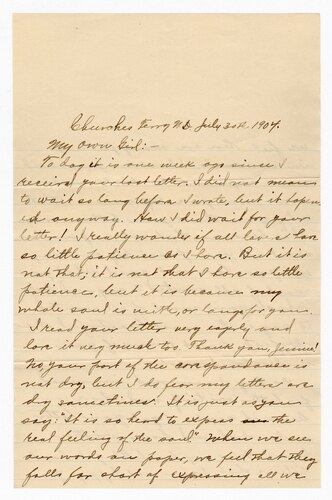 Churches Ferry N.D. July 30th, 1904.
My Own Girl:-
To day it is one week ago since I
received your last letter. I did not mean
to wait so long before I wrote, but it happen
ed anyway. How I did wait for your
letter! I really wonder if all lovers have
so little patience as I have. But it is
not that; it is not that I have so little
patience, but it is because my
whole soul is with, or longs for you.
I read your letter very eagerly and
love it very much too. Thank you, Jennie!
No, your part of the correspondance is
not dry, but I do fear my letters are
dry sometimes. It is just as you
say: "It is so hard to express the
real feeling of the soul." When we see
our words on paper, we feel that they
falls far short of expressing all we